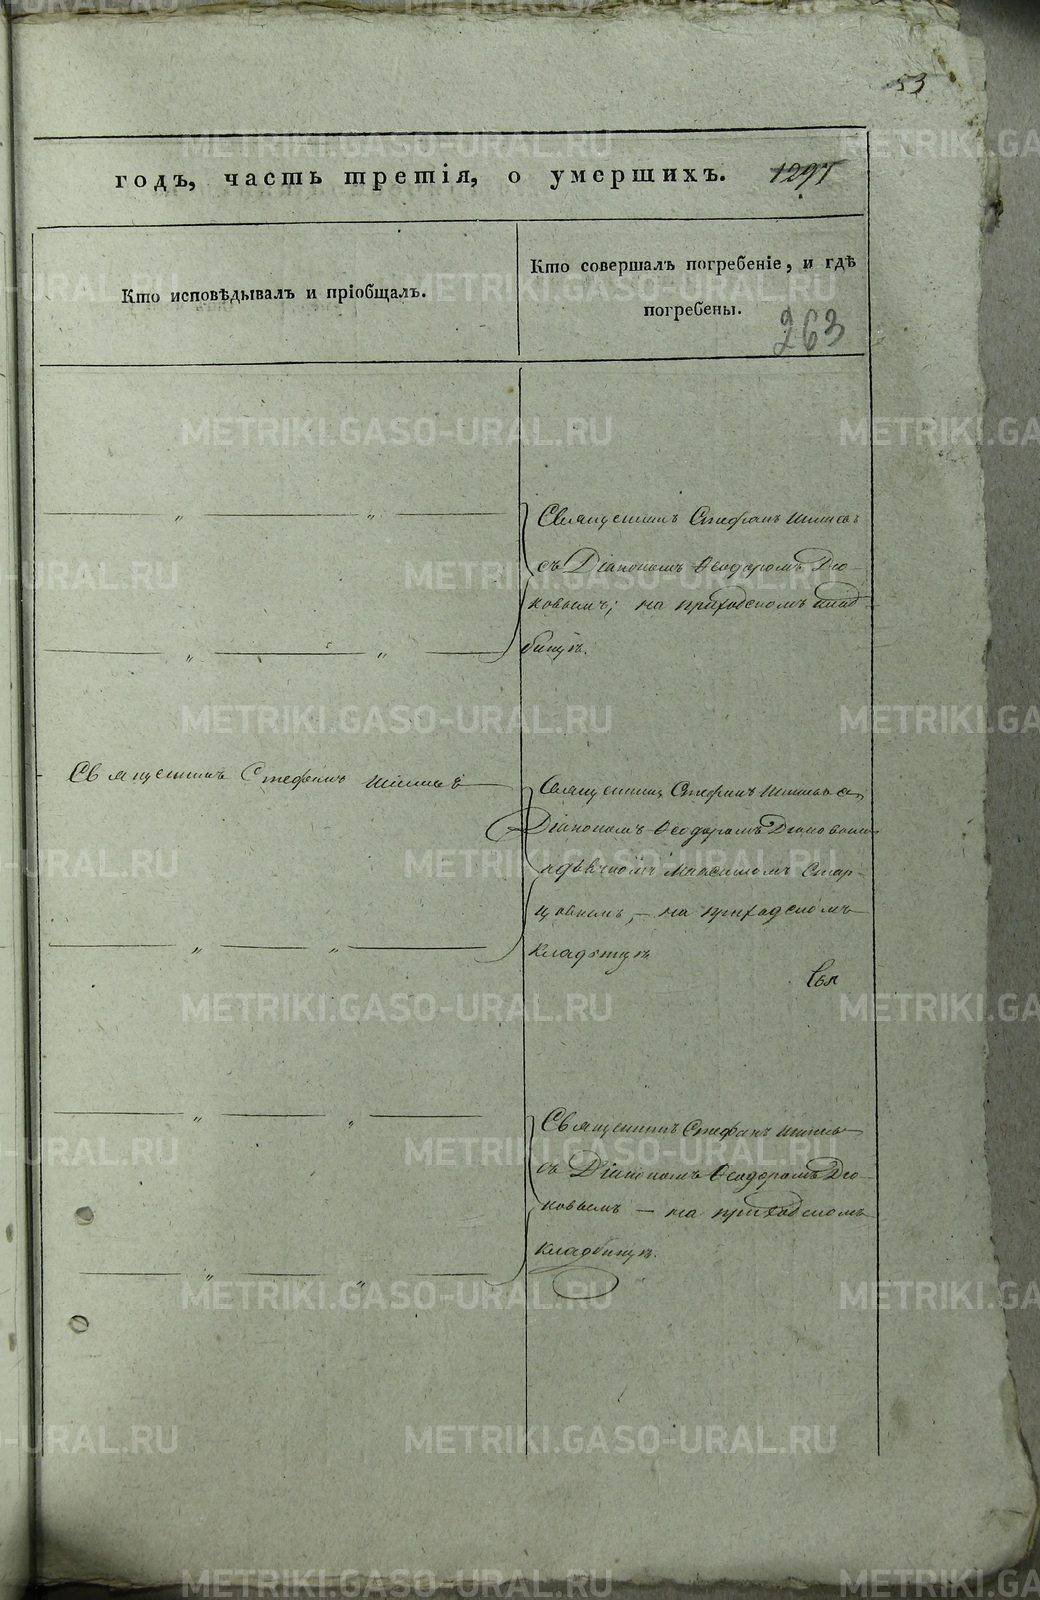 53
годъ, часть третія, о умершихъ. 1297
Кто исповѣдывалъ и пріобщалъ.
Кто совершалъ погребеніе, и гдѣ
погребены.
263
Священникъ Стефанъ
съ Діакономъ Ѳеодоромъ Дю-
ковымъ; на приходскомъ клад-
бищѣ.
Священникъ Стефанъ
Священникъ Стефанъ
Діакономъ Ѳеодоромъ Дюковымъ
Максимомъ Стар-
цовымъ, – на приходскомъ
Священникъ Стефанъ
съ Діакономъ Ѳеодоромъ Дю-
ковымъ – на приходскомъ
кладбищѣ.
METRIKI.GASO-URAL.RU